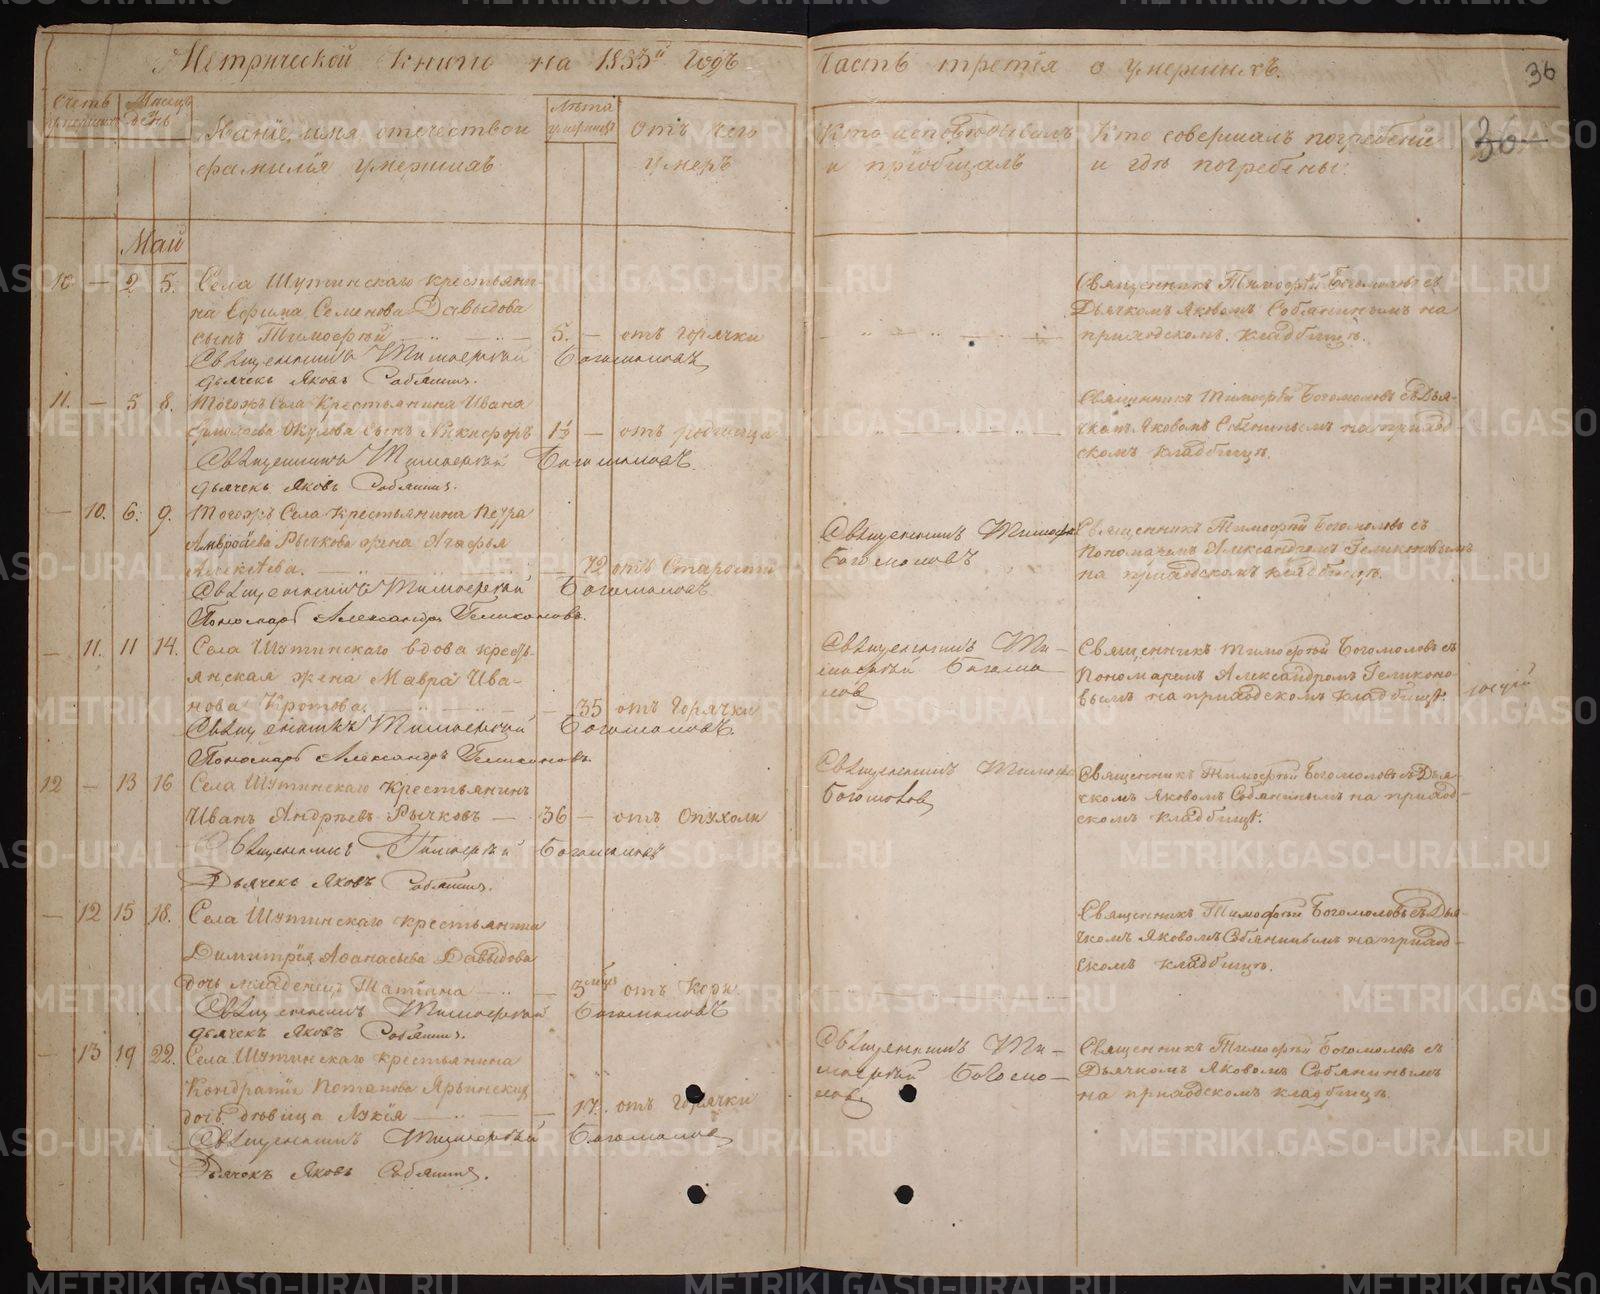 Метрической книги на 1835й Годъ
Часть третія о умершихъ.
36
30
Счетъ умершихъ
Месяцъ День
Званіе, имя, отечество и
фамилія умершихъ
Лѣта умершихъ
отъ чего
умеръ
Кто исповѣдывалъ
и пріобщалъ
Кто совершалъ погребеніе
и гдѣ погребены:
Май
10 — 2 5. Села Шутинскаго крестьяни-
на Ефима Семенова Давыдова
сынъ Тимофей 5. — отъ горячки
Священникъ Тимофей Богомоловъ
дьячекъ Яковъ Собянинъ.
Священникъ Тимофей Богомоловъ съ
Дьячкомъ Яковомъ Собянинымъ на
приходскомъ кладбищѣ.
11. — 5 8. Тогожъ Села Крестьянина Ивана
Ермолаева Окулова сынъ Никифоръ 1½ — отъ родимца
Священникъ Тимофей Богомоловъ
дьячекъ Яковъ Собянинъ.
Священникъ Тимофей Богомоловъ съ Дья-
чкомъ Яковомъ Собянинымъ на приход-
скомъ кладбищѣ.
— 10. 6. 9. Тогожъ Села Крестьянина Петра
Амвросіева Рычкова жена Агафья
Алексѣева. — 72 отъ Старости
Священникъ Тимофей Богомоловъ
Пономарь Александръ Геликоновъ.
Священникъ Тимофей
Богомоловъ
Священникъ Тимофей Богомоловъ съ
Пономаремъ Александромъ Геликоновымъ
на приходскомъ кладбищѣ.
— 11. 11 14. Села Шутинскаго вдова кресть-
янская жена Мавра Ива-
нова Кротова. — 35 отъ Горячки
Священникъ Тимофей Богомоловъ.
Пономарь Александръ Геликоновъ.
Священникъ Ти-
мофей Богомо-
ловъ
Священникъ Тимофей Богомоловъ съ
Пономаремъ Александромъ Геликоно-
вымъ на приходскомъ кладбищѣ.
12 — 13 16 Села Шутинскаго Крестьянинъ
Иванъ Андреевъ Рычковъ — 36 — отъ Опухоли
Священникъ Тимофей Богомоловъ
Дьячекъ Яковъ Собянинъ.
Священникъ Тимофей
Богомоловъ
Священникъ Тимофей Богомоловъ съ Дья-
чкомъ Яковомъ Собянинымъ на приход-
скомъ кладбищѣ.
— 12 15 18. Села Шутинскаго крестьянина
Димитрія Афанасьева Давыдова
дочь младенецъ Татіана — 3 мѣц отъ Кори
Священникъ Тимофей Богомоловъ
дьячекъ Яковъ Собянинъ.
Священникъ Тимофей Богомоловъ съ Дья-
чкомъ Яковомъ Собянинымъ на приход-
скомъ кладбищѣ.
— 13 19 22. Села Шутинскаго крестьянина
Кондратія Потапова
дочь дѣвица Лукія — 17. отъ Горячки
Священникъ Тимофей Богомоловъ
Дьячекъ Яковъ Собянинъ.
Священникъ Ти-
мофей Богомо-
ловъ.
Священникъ Тимофей Богомоловъ съ
Дьячкомъ Яковомъ Собянинымъ
на приходскомъ кладбищѣ.
METRIKI.GASO-URAL.RU